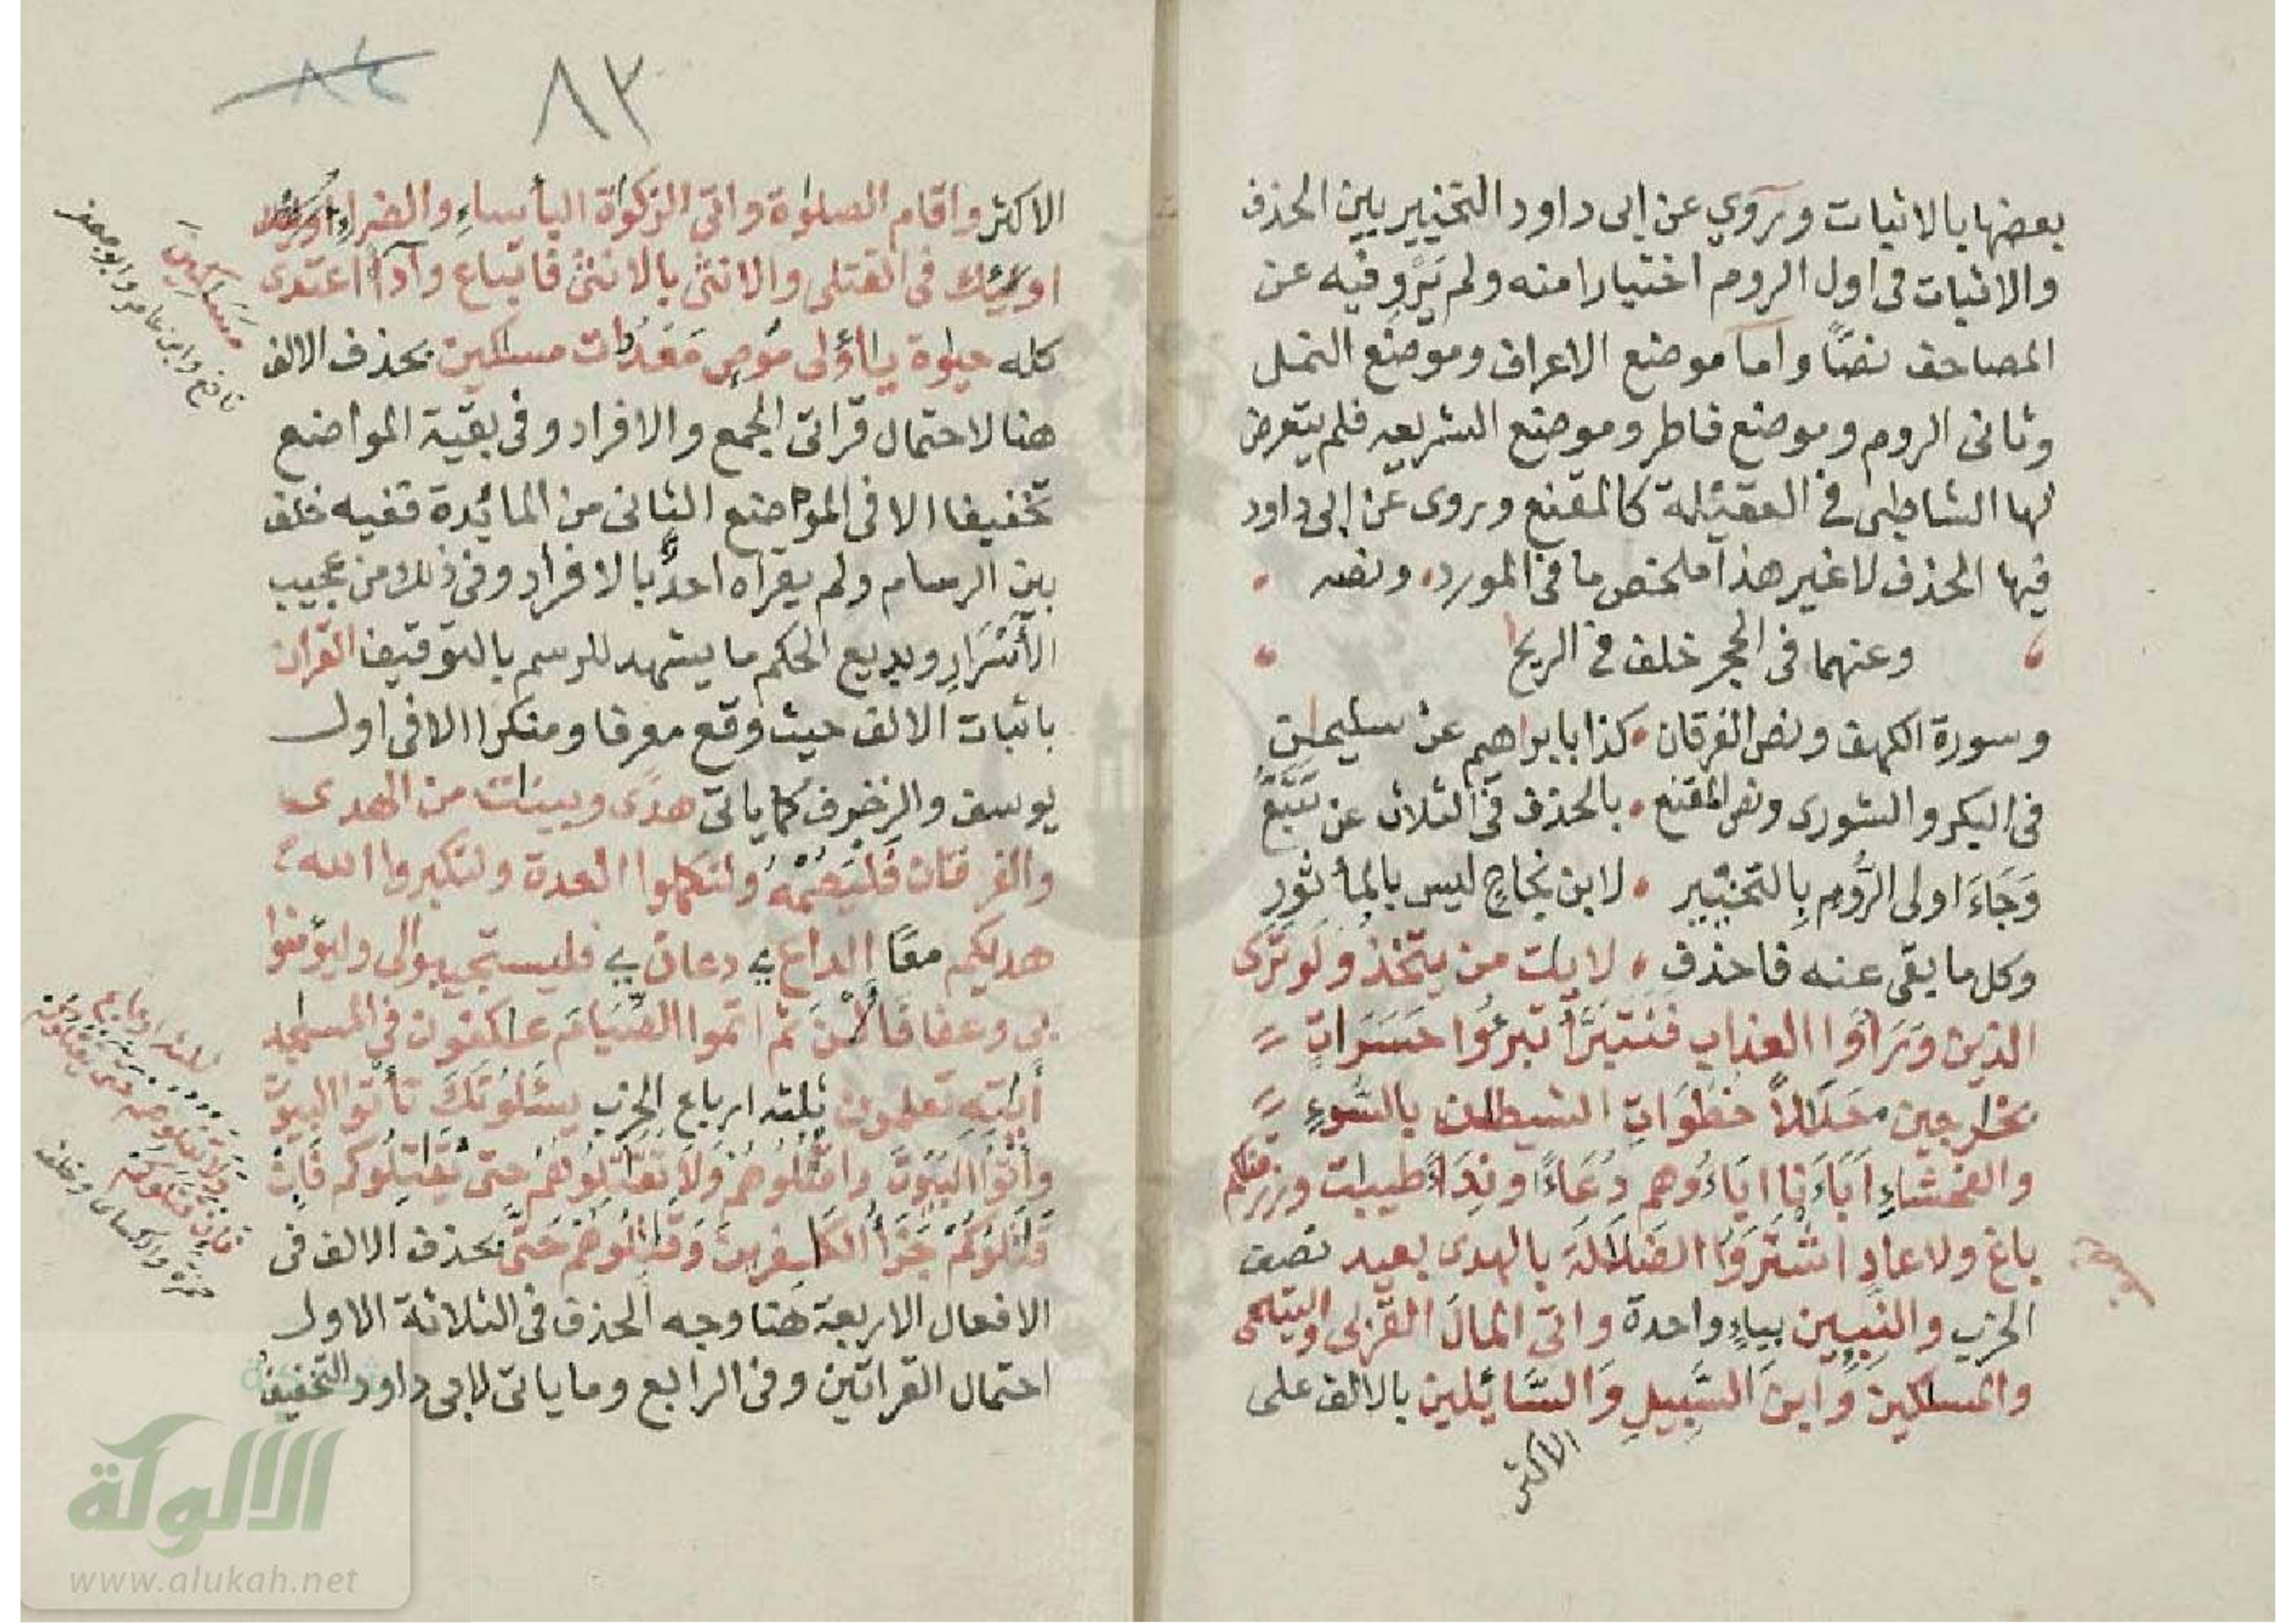 بعضها بالاثبات وروي عن ابى داود التخيير بين الحذف
والاثبات فى اول الروم اختيارا منه ولم يرو فيه عن
المصاحف نصا واما موضع الاعراف وموضع النمل
وثانى الروم وموضع فاطر وموضع الشريعه فلم يتعرض
لها الشاطبى فى العقيلة كالمقنع وروى عن ابى داود
فيها الحذف لا غير هذا ملخص ما فى المورد ونصه
وعنهما فى الحجر خلف فى الريح
وسورة الكهف ونص الفرقان كذا بابراهيم عن سليمن
فى البكر والشورى ونص المقنع بالحذف فى الثلاث عن تتبع
وَجَاءَ اولى الرُّومِ بِالتخيير لابن نجاحٍ ليس بالمأثورِ
وكل ما بقى عنه فاحذف لايت من يتخذ ولو ترى
الذين وَرَاَوُا العذاب فنتبرَّأ تبرءُوا حَسَرَاتٍ
بخٰرجين حَلَالاً خُطُوَاتِ الشيطٰن بالسُّوءِ
والفحشاءِ اٰبَاءَنا اٰبَاءُوهم دُعَاءً ونِدَاءً طيبٰت ورزقنكم
باغ ولا عادٍ اشْتَرَوُا الضلٰلَةَ بالهدى بعيد نصف
الحزب والنبين بياءٍ واحدة واتى المالَ القربى واليتٰمى
والمسٰكين وابنَ السَّبِيلِ وَالسَّائلين بالالف على
الاكثر
٨٣
الاكثر واقام الصلوٰة واتى الزكوٰة البأساءِ والضراءِ
اولئك فى القتلى والانثى بالانثى فاتباع وادآء اعتدى
كله حيٰوة يٰأولى مُوصٍ مَعْدُدٰت مسٰكين بحذف الالف
هنا لاحتمال قراتى الجمع والافراد وفى بقية المواضع
تخفيفا الا فى الموضع الثانى من المائدة ففيه خلف
بين الرسام ولم يقراه احدٌ بالافراد وفى ذلك من عجيب
الأسْرَارِ وبديع الحكم ما يشهد للرسم بالتوقيف القران
باثبات الالف حيث وقع معرفا ومنكرا الا فى اول
يوسف والزخرف كما ياتى هدًى وبينٰت من الهدى
والفرقان فَليَصُمْهُ ولتكملوا العدة ولتكبروا الله
هديكم معًا الداع دعان فليستجيبوالى وليؤمنوا
بى وعفا فالٰٔنَ ثم اتموا الصِّيَامَ عٰكفون فى المسٰجد
اٰيٰتِهِ تعلمون ثلثه ارباع الحزب يسْئَلُونَكَ تأتوا البيوت
وأتوا البيوت واقتُلُوهُمْ ولا تُقٰتِلُوهُم حتى يُقٰتِلُوكم فَاِن
قٰتَلُوكُمْ جَزَاءُ الكٰفرين وَقٰتِلُوهُمْ حَتّٰى بحذف الالف فى
الافعال الاربعة هنا وجه الحذف فى الثلاثة الاول
احتمال القراتين وفى الرابع وما ياتى لابى داود التخفيف
مَسَاكِينَ
نافع وابن عامر وابو جعفر
حمزة والكسائى وخلف
الألوكة
www.alukah.net